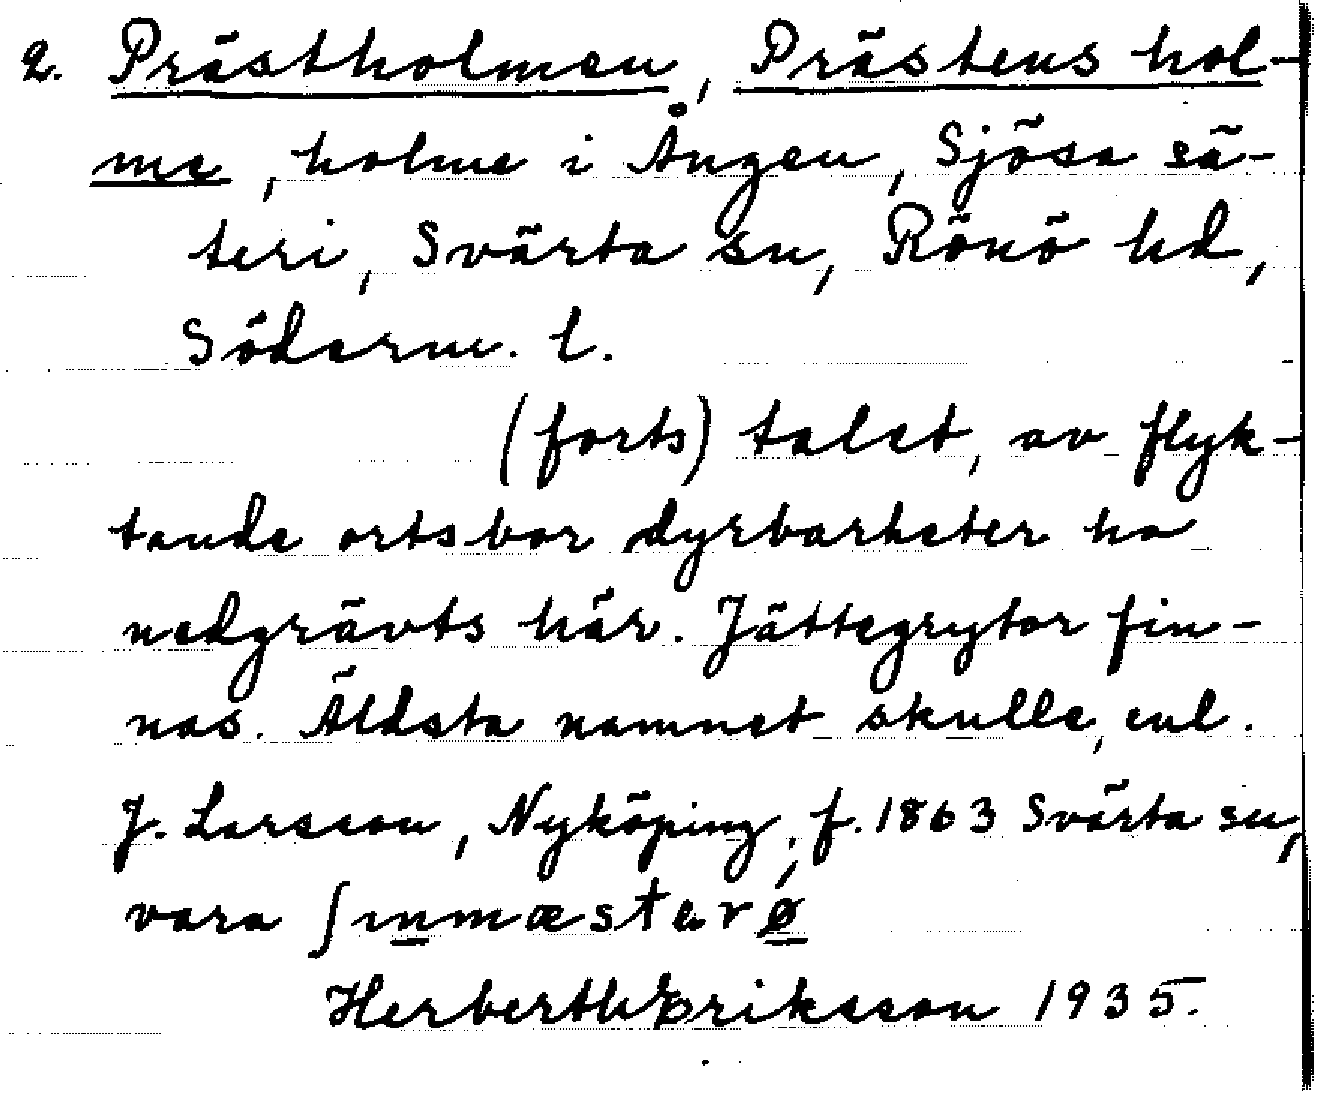 2. Prästholmen, Prästens hol-
me, holme i Ången, Sjösa sä-
teri, Svärta sn, Rönö hd,
Söderm. l.
(forts) talet, av flyk-
tande ortsbor dyrbarheter ha
nedgrävts här. Jättegrytor fin-
nas. Äldsta namnet skulle, enl.
J. Larsson, Nyköping, f. 1863 Svärta sn,
vara ʃinmæstərø
Herbert Eriksson 1935.